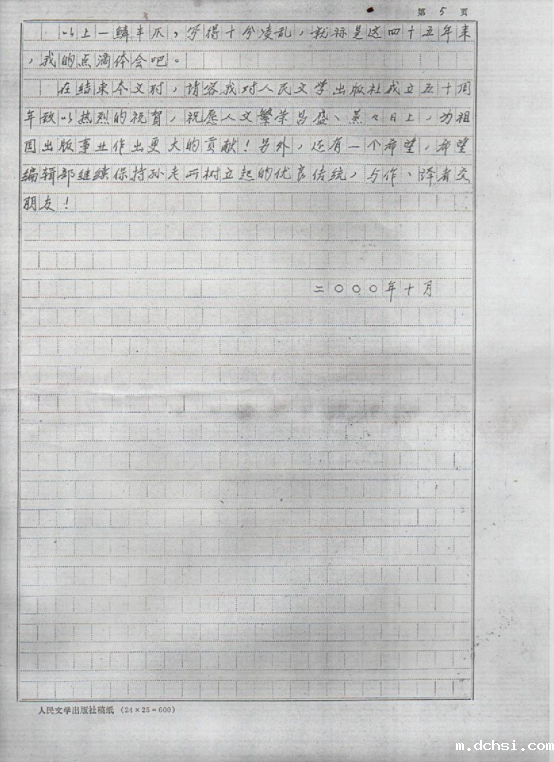 第 5 页
以上一鳞半爪，写得十分凌乱，就称是这四十五年来
，我的点滴体会吧。
在结束本文时，请容我对人民文学出版社成立五十周
年致以热烈的祝贺，祝愿人文繁荣昌盛、蒸々日上，为祖
国出版事业作出更大的贡献！另外，还有一个希望，希望
编辑部继续保持孙老所树立起的优良传统，与作、译者交
朋友！
二〇〇〇年十月
人民文学出版社稿纸 (24×25=600)
m.dchsi.com